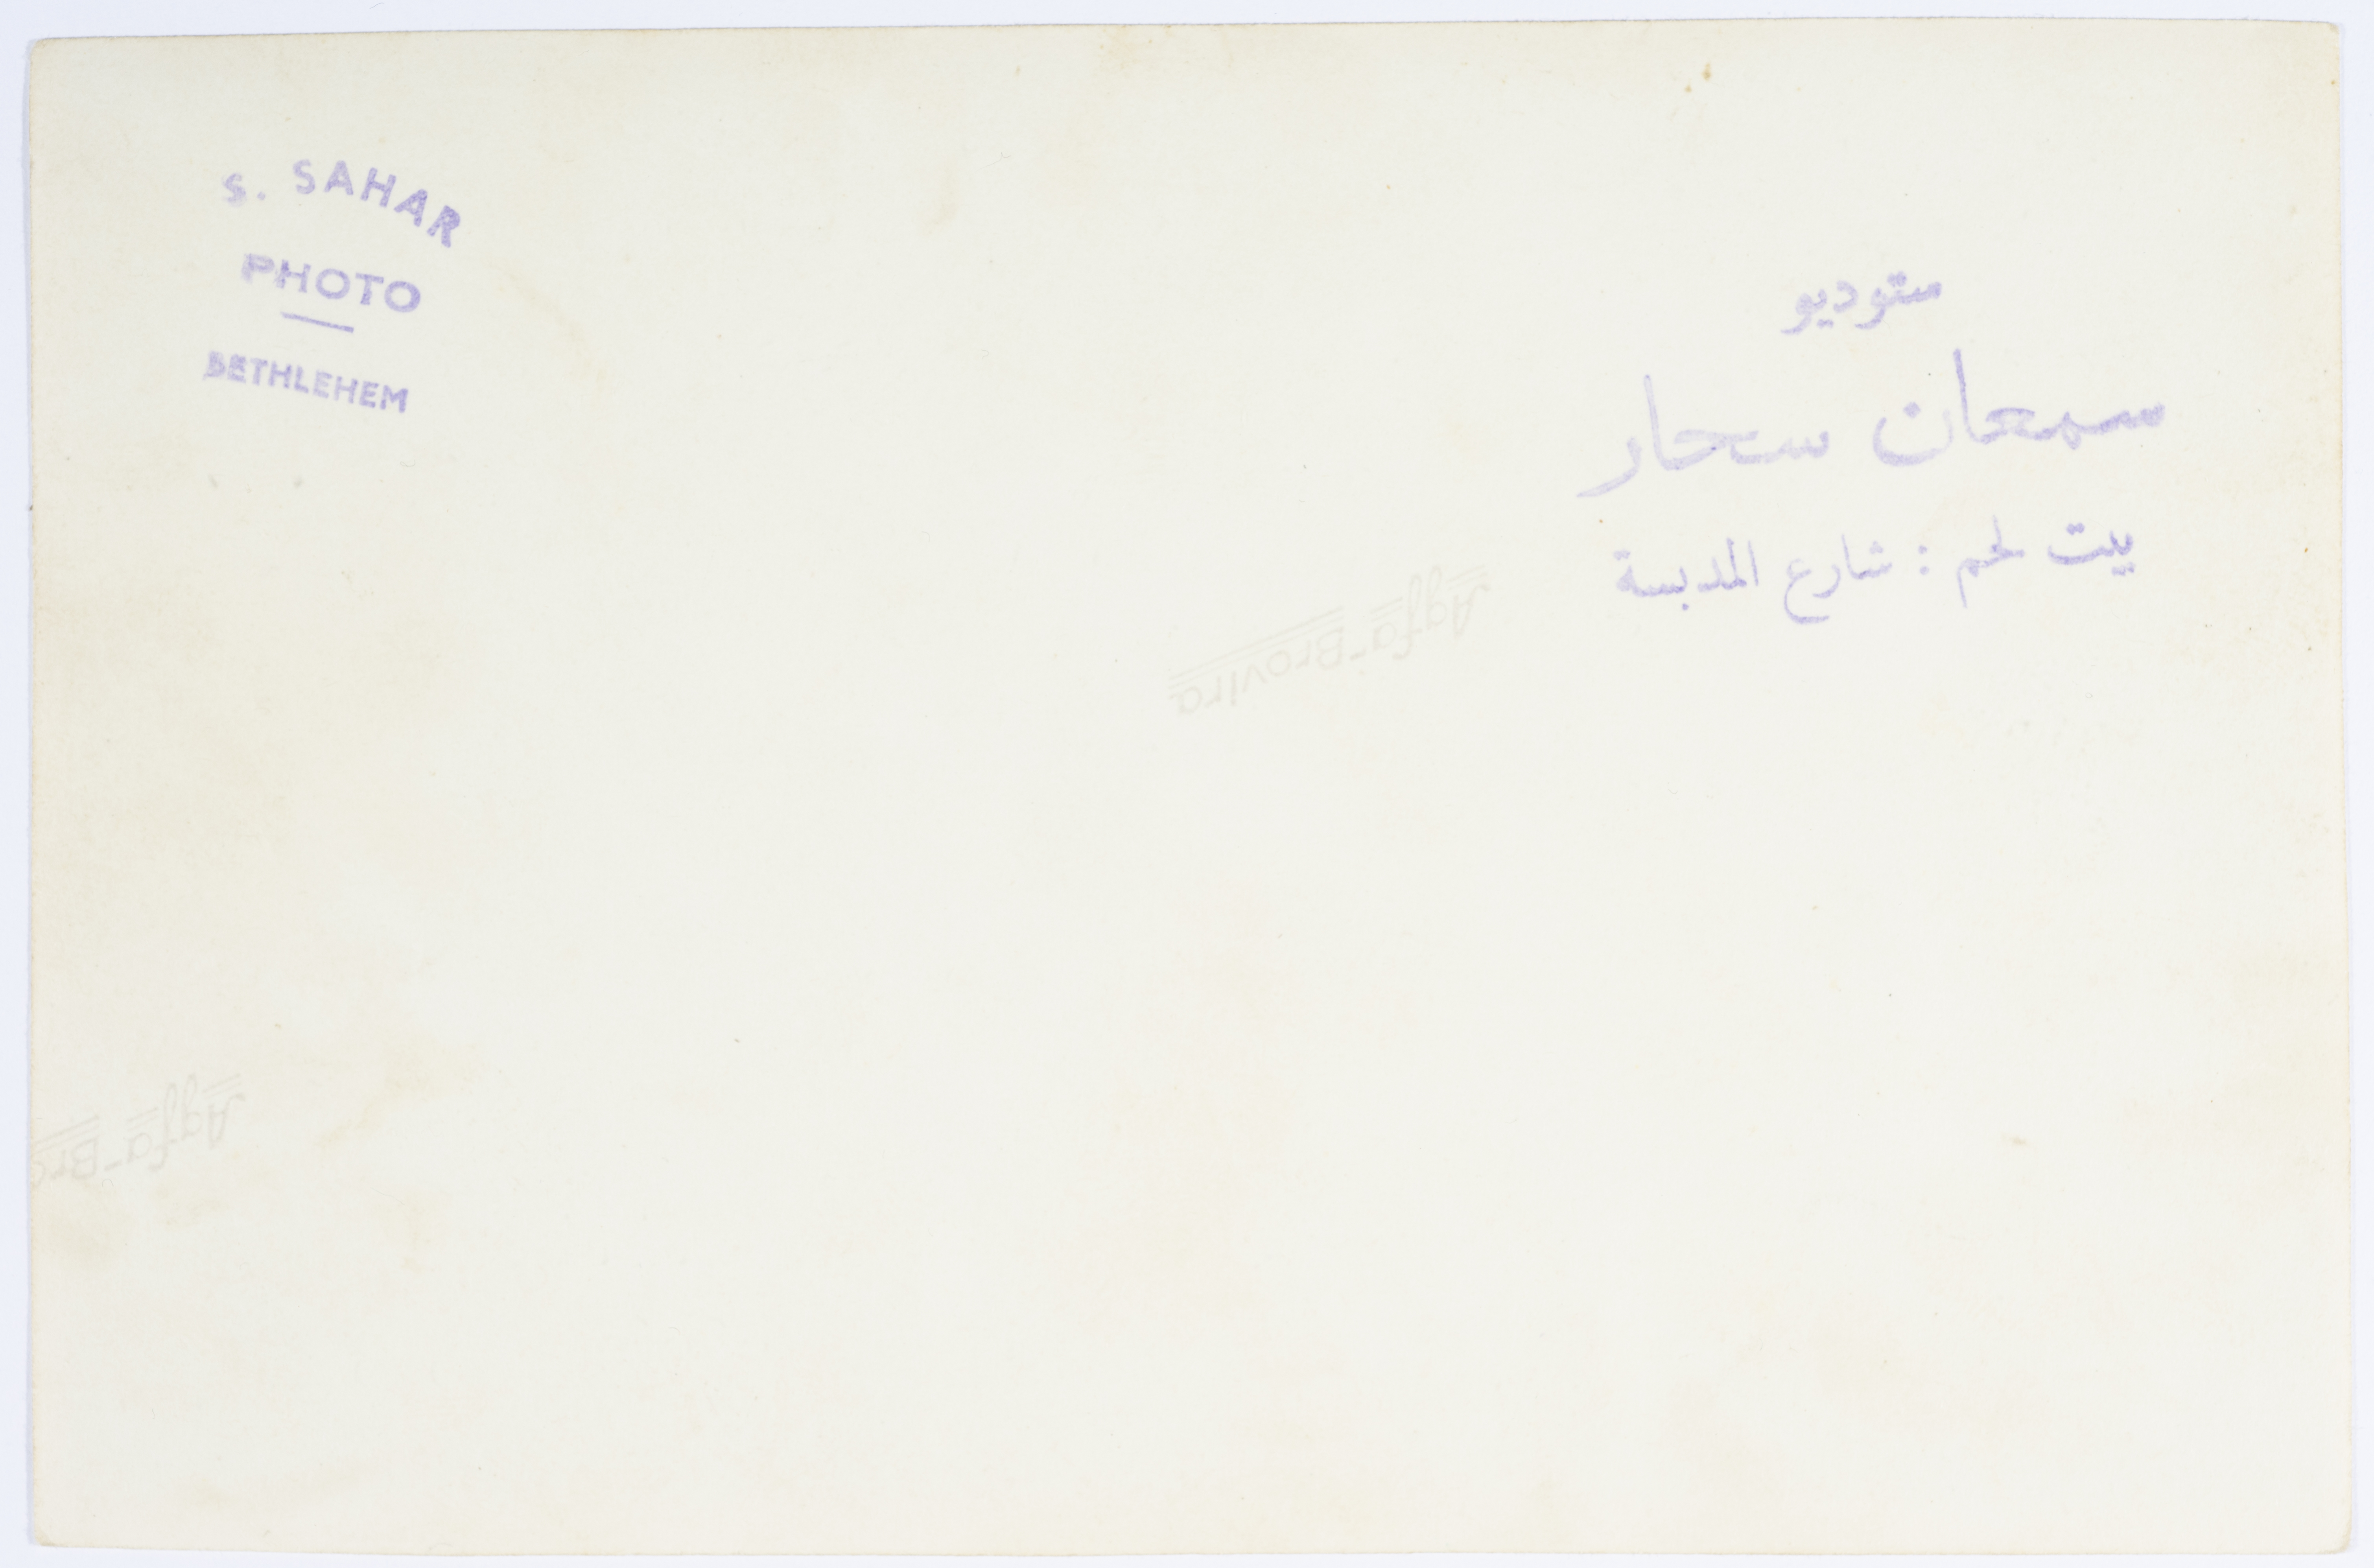 S. SAHAR
PHOTO
BETHLEHEM
ستوديو
سمعان سحار
بيت لحم : شارع المدبسة
Agfa-Brovira
Agfa-Bro